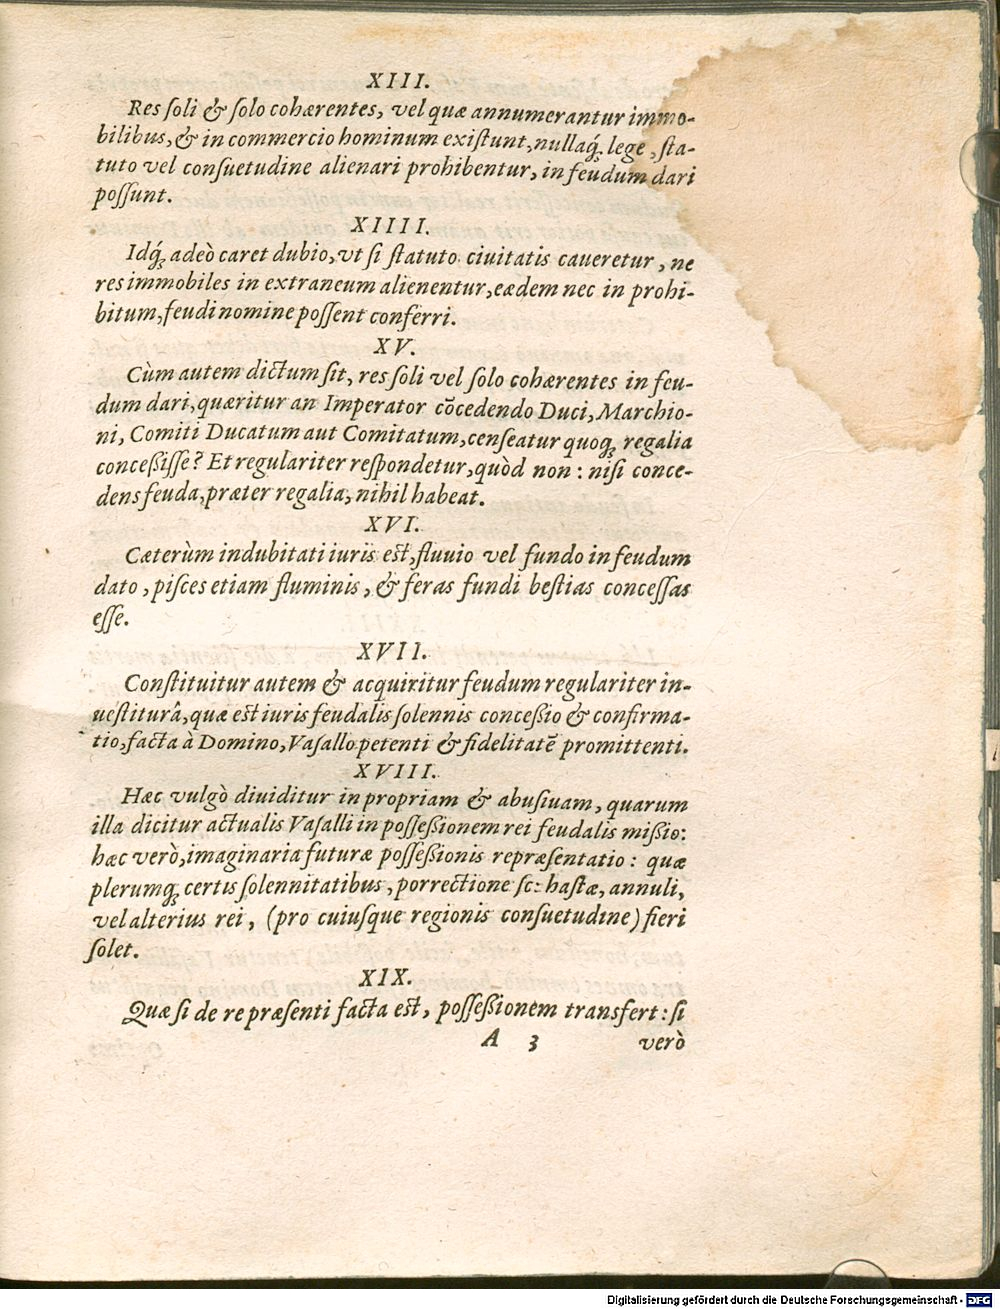 XIII.
Res ſoli & ſolo cohærentes, vel quæ annumerantur immo-
bilibus, & in commercio hominum exiſtunt, nullaq́; lege, ſta-
tuto vel conſuetudine alienari prohibentur, in feudum dari
poſſunt.
XIIII.
Idq́; adeò caret dubio, vt ſi ſtatuto ciuitatis caueretur, ne
res immobiles in extraneum alienentur, eædem nec in prohi-
bitum, feudi nomine poſſent conferri.
XV.
Cùm autem dictum ſit, res ſoli vel ſolo cohærentes in feu-
dum dari, quæritur an Imperator cōcedendo Duci, Marchio-
ni, Comiti Ducatum aut Comitatum, cenſeatur quoq; regalia
conceßiſſe? Et regulariter reſpondetur, quòd non: niſi conce-
dens feuda, præter regalia, nihil habeat.
XVI.
Cæterùm indubitati iuris eſt, fluuio vel fundo in feudum
dato, piſces etiam fluminis, & feras fundi beſtias conceſſas
eſſe.
XVII.
Conſtituitur autem & acquiritur feudum regulariter in-
ueſtiturâ, quæ eſt iuris feudalis ſolennis conceßio & confirma-
tio, facta à Domino, Vaſallo petenti & fidelitatē promittenti.
XVIII.
Hæc vulgò diuiditur in propriam & abuſiuam, quarum
illa dicitur actualis Vaſalli in poſſeßionem rei feudalis mißio:
hæc verò, imaginaria futuræ poſſeßionis repræſentatio: quæ
plerumq; certis ſolennitatibus, porrectione ſc: haſtæ, annuli,
vel alterius rei, (pro cuiuſque regionis conſuetudine) fieri
ſolet.
XIX.
Quæ ſi de re præſenti facta eſt, poſſeßionem transfert: ſi
A 3 verò
Digitalisierung gefördert durch die Deutsche Forschungsgemeinschaft - DFG